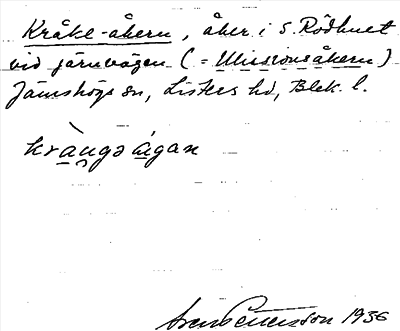 Kråke-åkern, åker i S. Rödhult
vid järnvägen (= Missionsåkern)
Jämshögs sn, Listers hd, Blek. l.
Sven Petersson 1936